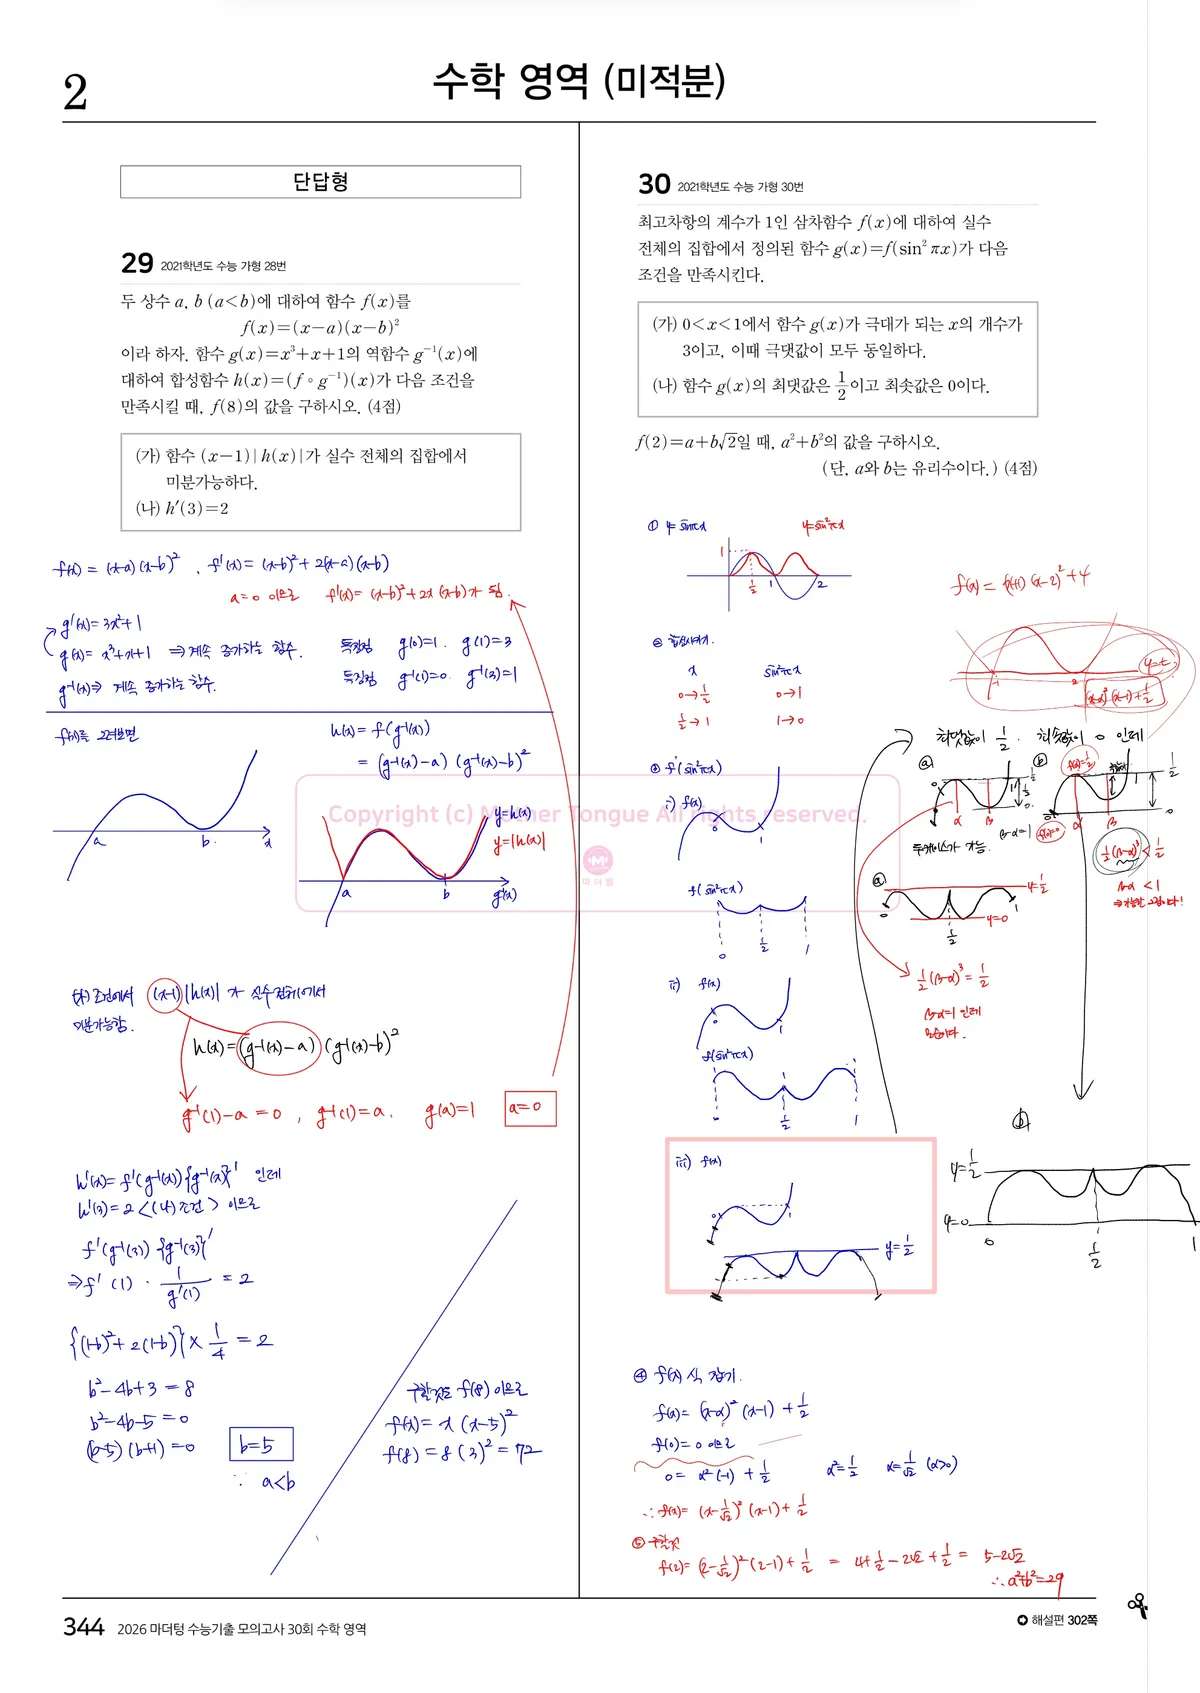 2
수학 영역 (미적분)
단답형
29 2021학년도 수능 가형 28번
두 상수 a, b (a<b)에 대하여 함수 f(x)를
f(x)=(x-a)(x-b)²
이라 하자. 함수 g(x)=x³+x+1의 역함수 g⁻¹(x)에
대하여 합성함수 h(x)=(f∘g⁻¹)(x)가 다음 조건을
만족시킬 때, f(8)의 값을 구하시오. (4점)
(가) 함수 (x-1)|h(x)|가 실수 전체의 집합에서
미분가능하다.
(나) h′(3)=2
f(x) = (x-a)(x-b)² , f'(x) = (x-b)²+2(x-a)(x-b)
a=0 이므로 f'(x)= (x-b)²+2x(x-b)가 됨.
g'(x)=3x²+1
g(x)= x³+x+1 ⇒ 계속 증가하는 함수.
특징점 g(0)=1. g(1)=3
g⁻¹(x)⇒ 계속 증가하는 함수.
특징점 g⁻¹(1)=0. g⁻¹(3)=1
f(x)를 그려보면
h(x)= f(g⁻¹(x))
= (g⁻¹(x)-a)(g⁻¹(x)-b)²
a b x
y=h(x)
y=|h(x)|
a b g⁻¹(x)
(가) 조건에서 (x-1)|h(x)| 가 실수전체에서
미분가능함.
h(x)=(g⁻¹(x)-a)(g⁻¹(x)-b)²
g⁻¹(1)-a=0 , g⁻¹(1)=a. g(a)=1 a=0
h'(x)=f'(g⁻¹(x)){g⁻¹(x)}' 인데
h'(3)=2 <(나)조건> 이므로
f'(g⁻¹(3)) {g⁻¹(3)}'
⇒ f'(1) · 1/g'(1) = 2
{(1-b)²+2(1-b)} × 1/4 = 2
b²-4b+3 = 8
b²-4b-5 = 0
(b-5)(b+1)=0 b=5
∵ a<b
구할것은 f(8) 이므로
f(x)= x(x-5)²
f(8) = 8(3)² = 72
30 2021학년도 수능 가형 30번
최고차항의 계수가 1인 삼차함수 f(x)에 대하여 실수
전체의 집합에서 정의된 함수 g(x)=f(sin² πx)가 다음
조건을 만족시킨다.
(가) 0<x<1에서 함수 g(x)가 극대가 되는 x의 개수가
3이고, 이때 극댓값이 모두 동일하다.
(나) 함수 g(x)의 최댓값은 1/2이고 최솟값은 0이다.
f(2)=a+b√2일 때, a²+b²의 값을 구하시오.
(단, a와 b는 유리수이다.) (4점)
① y=sinπx y=sin²πx
1 1/2 1 2
f(x) = (x+1)(x-2)²+4
-1 2 y=t
(x-α)²(x-1)+1/2
x sin²πx
0→1/2 0→1
1/2→1 1→0
③ f(sin²πx)
i) f(x)
0 1
f(sin²πx)
0 1/2 1
ii) f(x)
0 1
f(sin²πx)
1/2 1
iii) f(x)
0 1
y=1/2
최댓값이 1/2. 최솟값이 0 인데
ⓐ ⓑ
α β
β-α=1
f(α)=1/2
f(0)=0
두케이스가 가능.
1/2(β-α)³ < 1/2
β-α < 1
ⓐ y=1/2
y=0
0 1/2 1
1/2(β-α)³=1/2
β-α=1 인데
모순이다.
ⓑ
y=1/2
y=0
0 1/2 1
④ f(x) 식 잡기.
f(x)= (x-α)²(x-1)+1/2
f(0)=0 이므로
0= α²(-1)+1/2 α²=1/2 α=1/√2 (α>0)
∴ f(x)= (x-1/√2)²(x-1)+1/2
⑤ 구할것
f(2)= (2-1/√2)²(2-1)+1/2 = 4+1/2-2√2+1/2 = 5-2√2
∴ a²+b²=29
Copyright (c) Mother Tongue All rights reserved.
마더텅
344 2026 마더텅 수능기출 모의고사 30회 수학 영역
해설편 302쪽